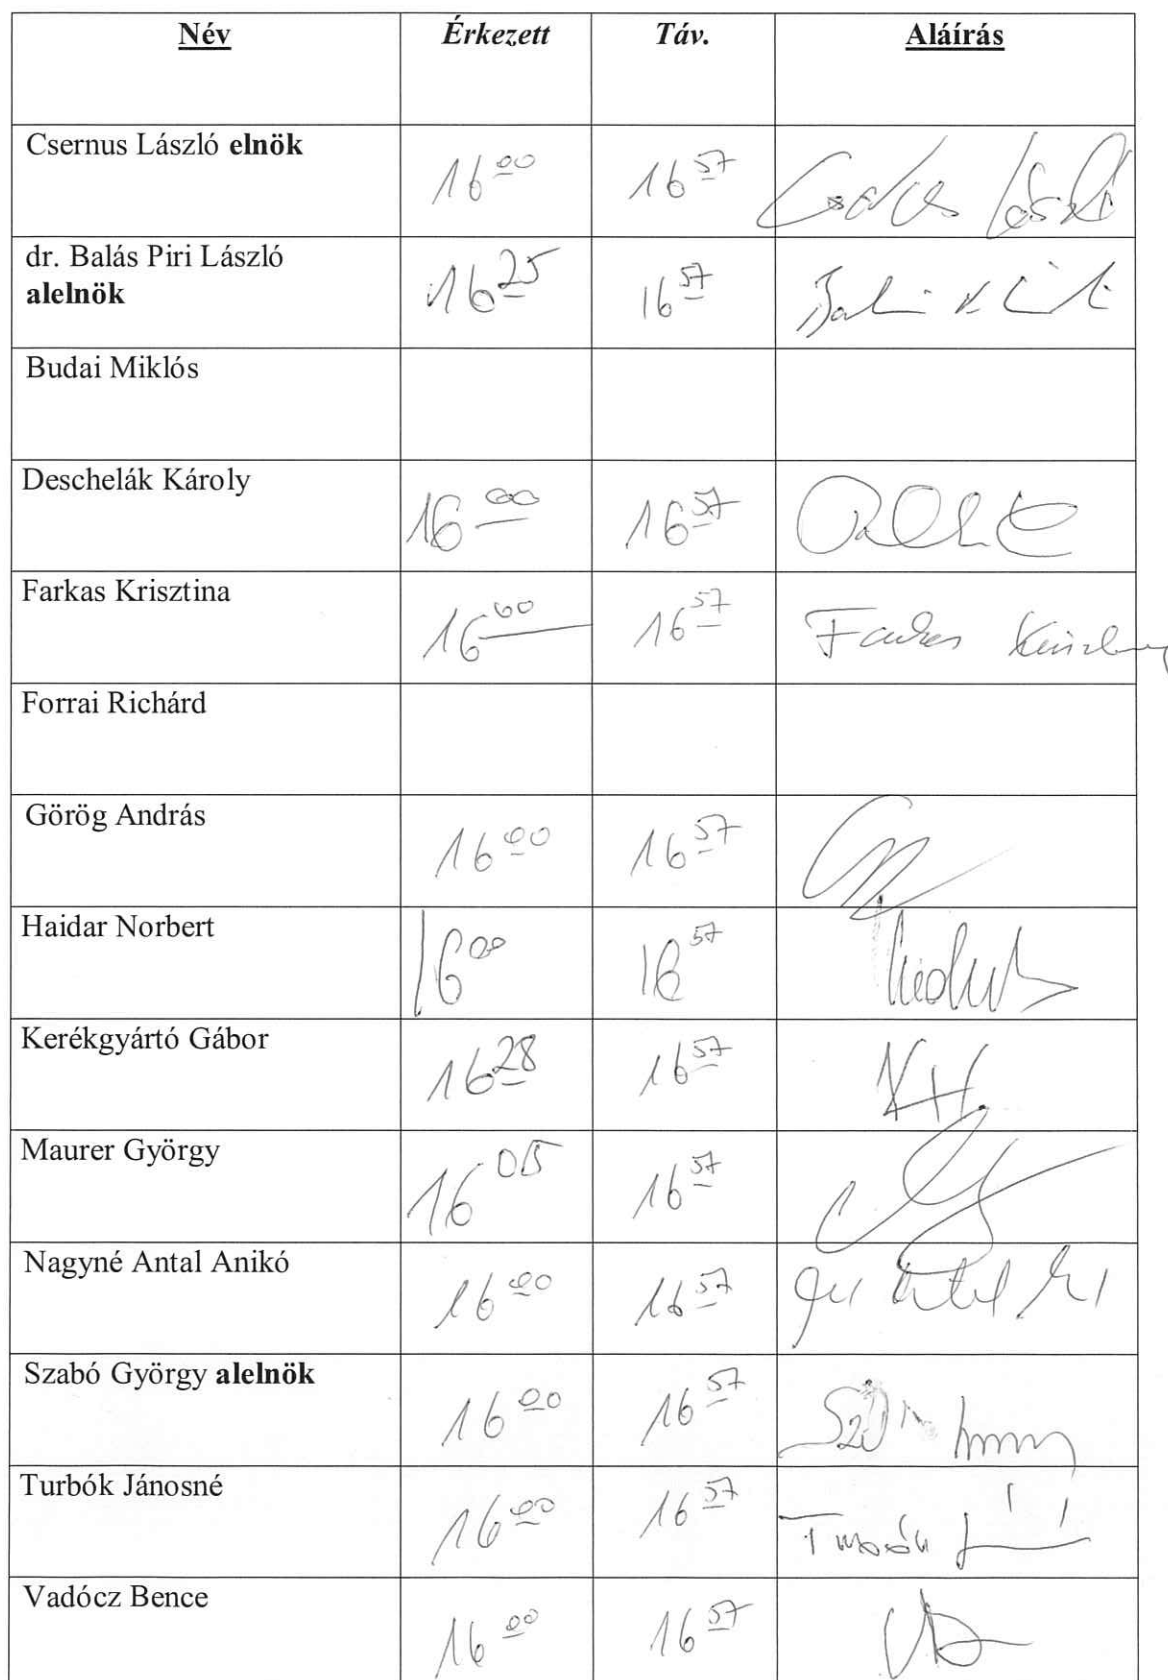 Név Érkezett Táv. Aláírás
Csernus László elnök 16⁰⁰ 16⁵⁷
dr. Balás Piri László
alelnök 16²⁵ 16⁵⁷
Budai Miklós
Deschelák Károly 16⁰⁰ 16⁵⁷
Farkas Krisztina 16⁰⁰ 16⁵⁷ Farkas Krisztina
Forrai Richárd
Görög András 16⁰⁰ 16⁵⁷
Haidar Norbert 16⁰⁰ 16⁵⁷
Kerékgyártó Gábor 16²⁸ 16⁵⁷
Maurer György 16⁰⁵ 16⁵⁷
Nagyné Antal Anikó 16⁰⁰ 16⁵⁷
Szabó György alelnök 16⁰⁰ 16⁵⁷
Turbók Jánosné 16⁰⁰ 16⁵⁷
Vadócz Bence 16⁰⁰ 16⁵⁷